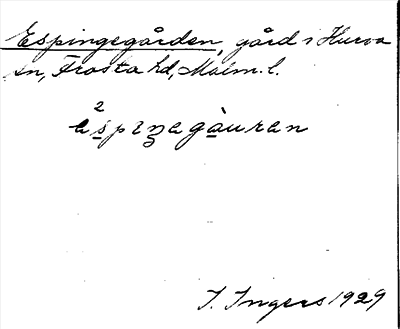 Espingegården, gård i Hurva
sn, Frosta hd, Malm. l.
2
espiŋegàuran
I. Ingers 1929